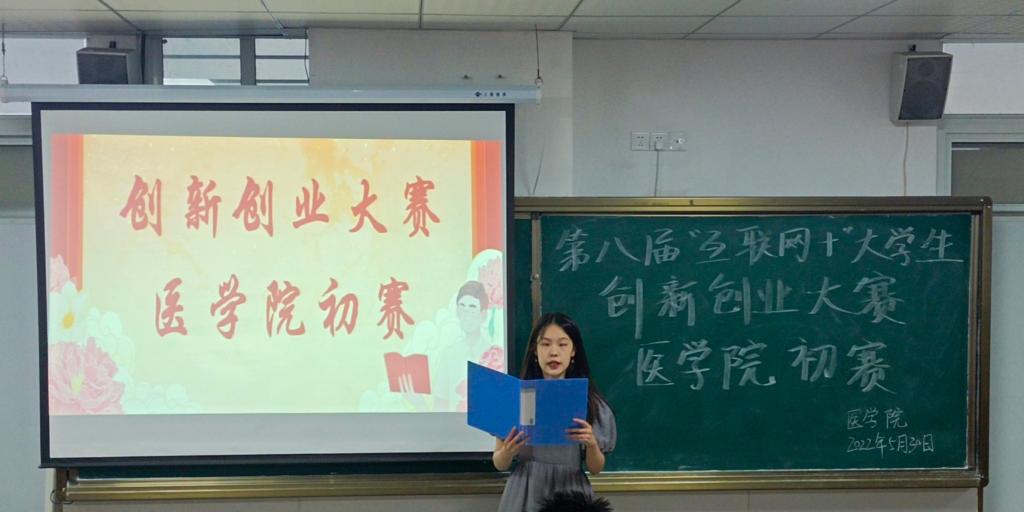 创新创业大赛
医学院初赛
第八届"互联网+"大学生
创新创业大赛
医学院初赛
医学院
2022年5月30日